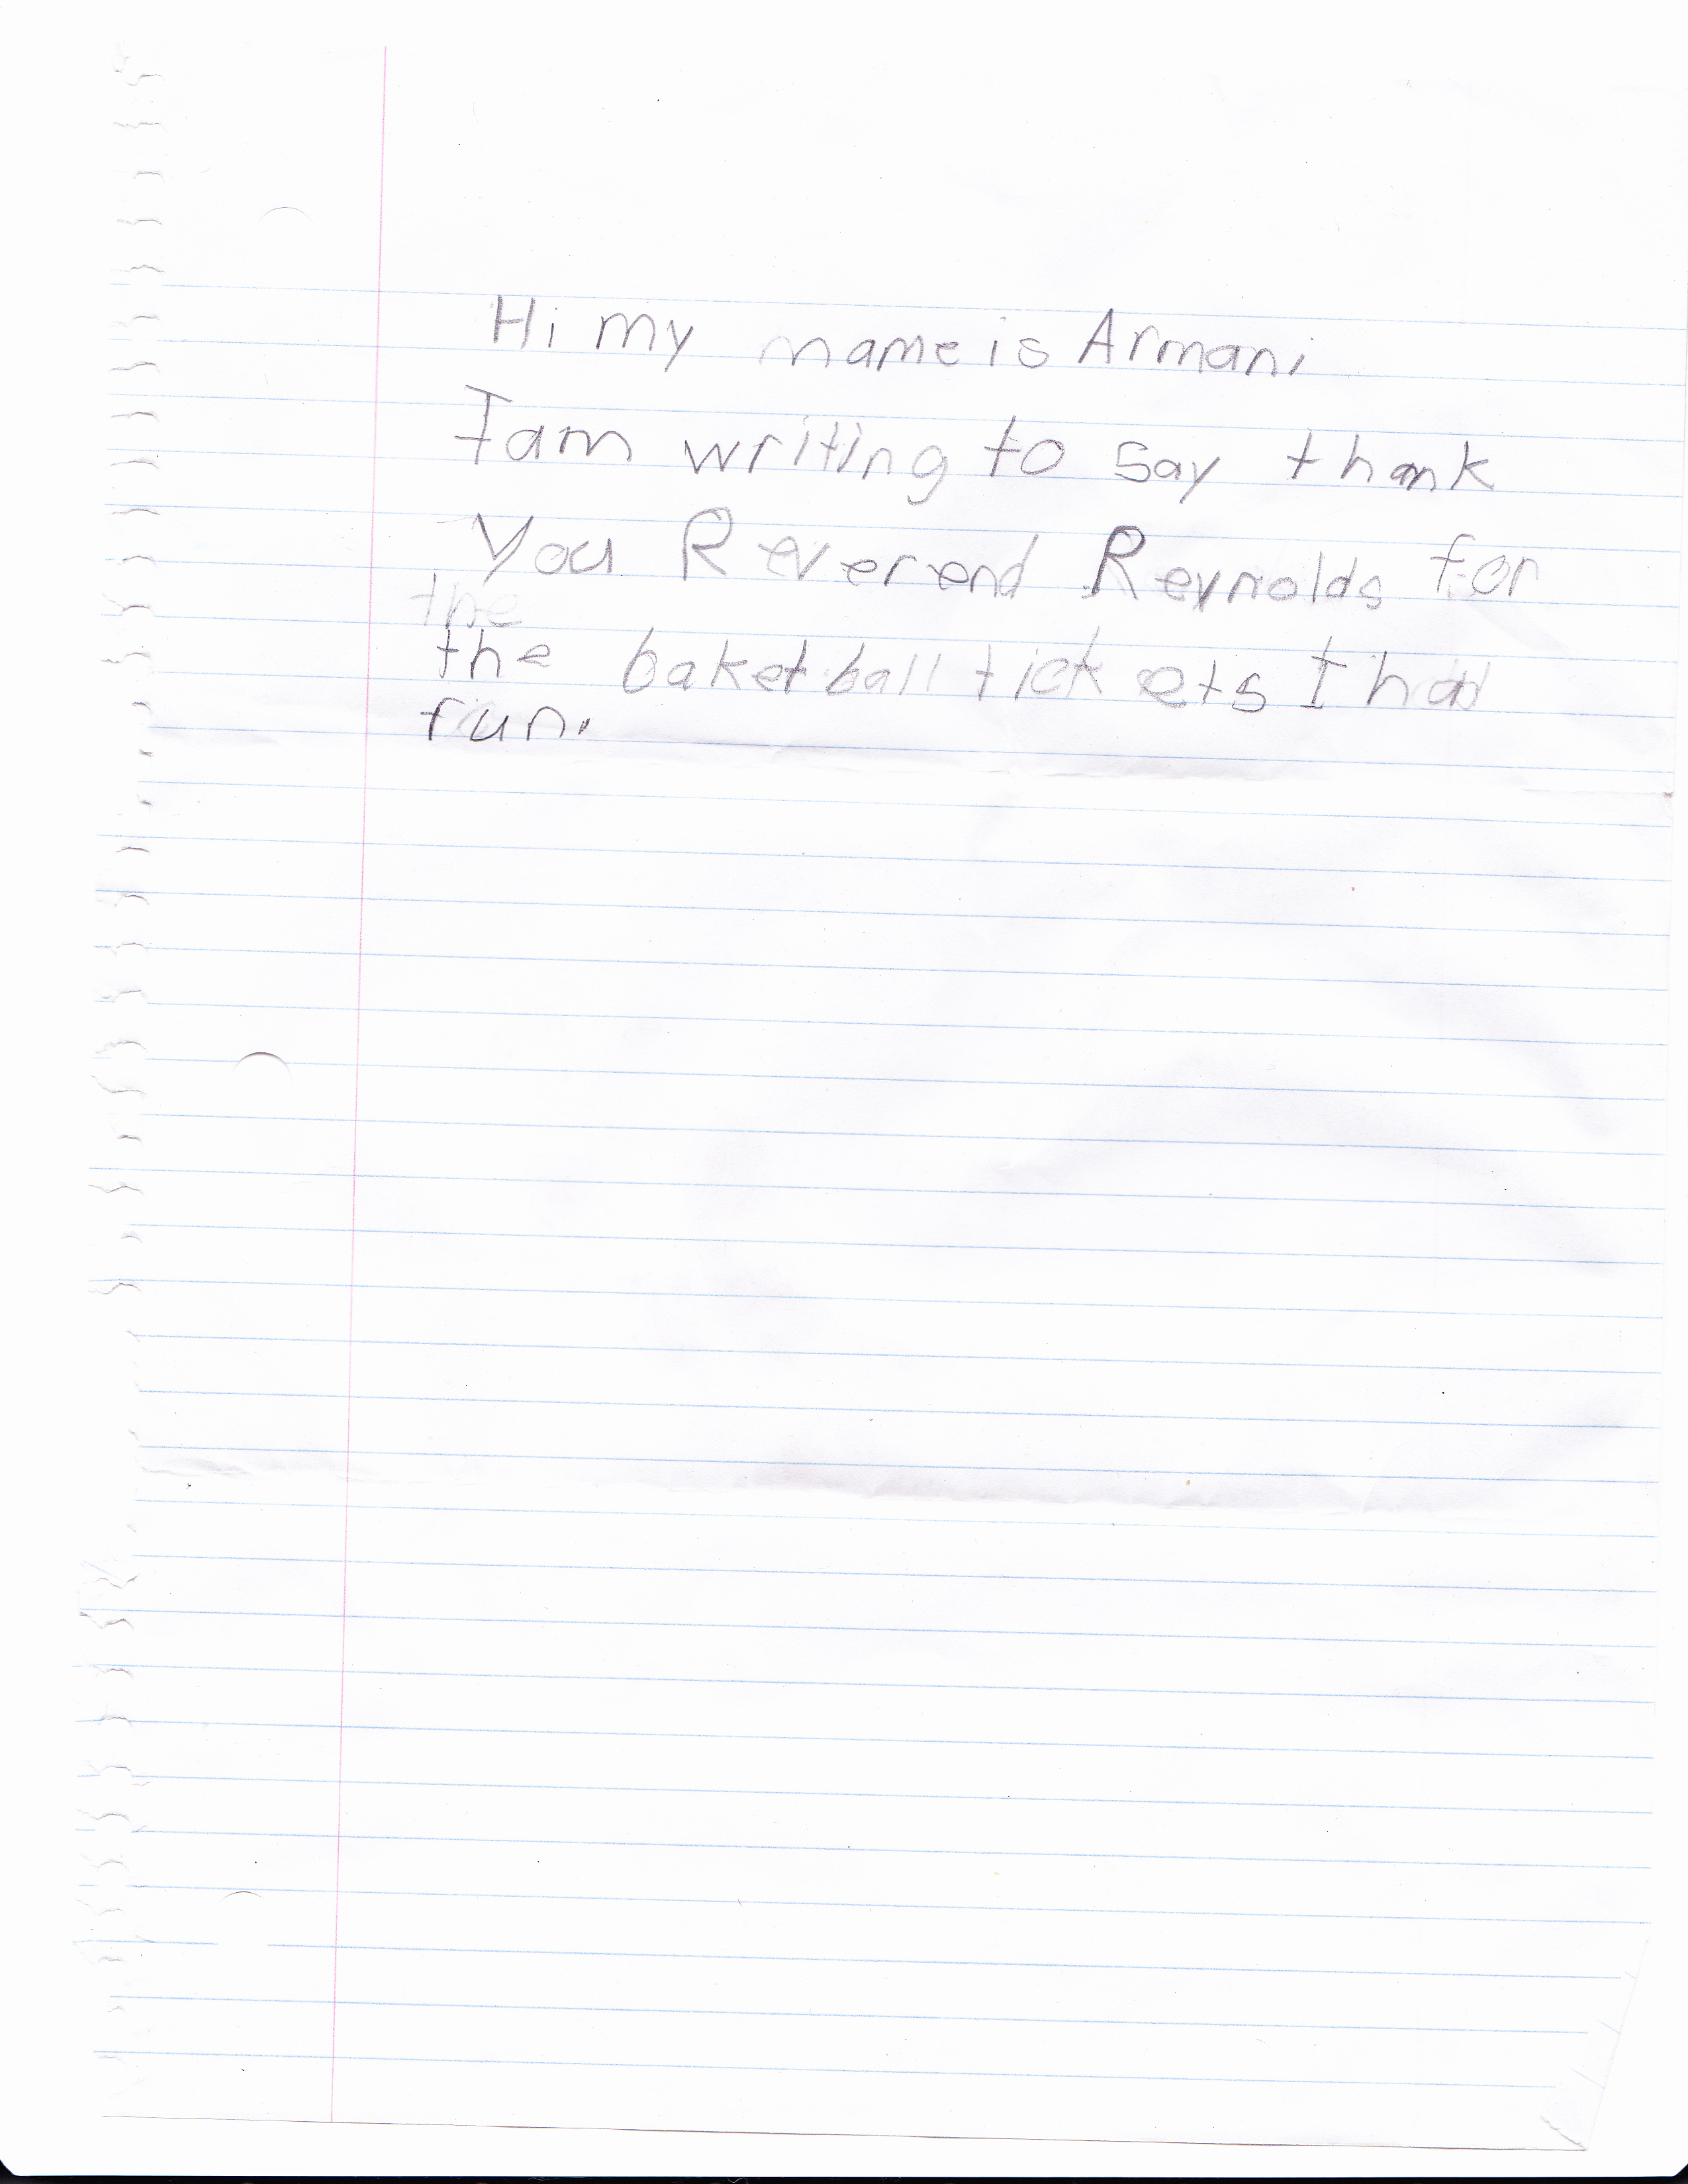 Hi my mame is Armani
I am writing to say thank
You Reverend Reynolds for
the
the baketball tickets I had
fun.